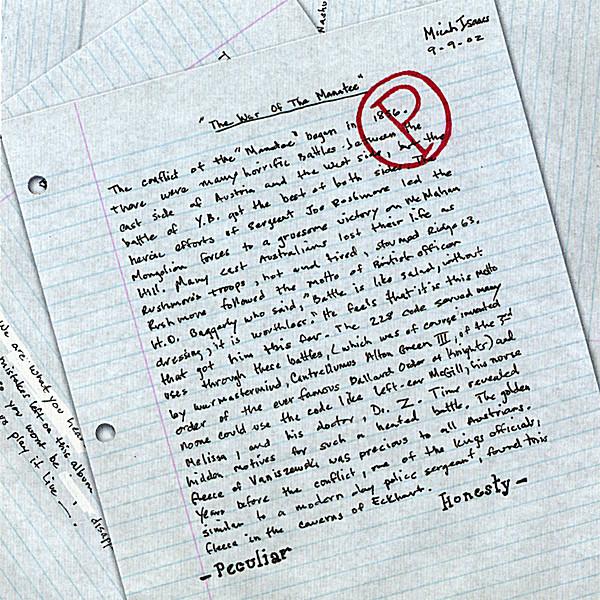 Micah Isaacs
9-9-02
"The War Of The Manatee"
P
The conflict of the "Manatee" began in 1856.
There were many horrific battles between the
east side of Austria and the west side, but the
battle of Y.B. got the best of both sides. The
heroic efforts of Sergeant Joe Rushmore led the
Mongolian forces to a gruesome victory on McMahan
Hill. Many east Australians lost their life as
Rushmore's troops, hot and tired, stormed Ridge 63.
Rushmore followed the motto of British officer
H.D. Baggerly who said, "Battle is like salad, without
dressing, it is worthless." He feels that it is this motto
that got him this far. The 228 code served many
uses through these battles, (which was of course invented
by war mastermind, Centrellumus Alton Green III, of the 3rd
order of the ever famous Dullard Order of Knights) and
none could use the code like left-ear McGill, his nurse
Melissa, and his doctor, Dr. Z. Time revealed
hidden motives for such a heated battle. The golden
fleece of Vaniszewski was precious to all Austrians.
Years before the conflict, one of the Kings officials,
similar to a modern day police sergeant, found this
fleece in the caverns of Eckhart.
Honesty-
-Peculiar
We are what you hear
mistakes left on this album
you wont be disapp
play it live
Nashv